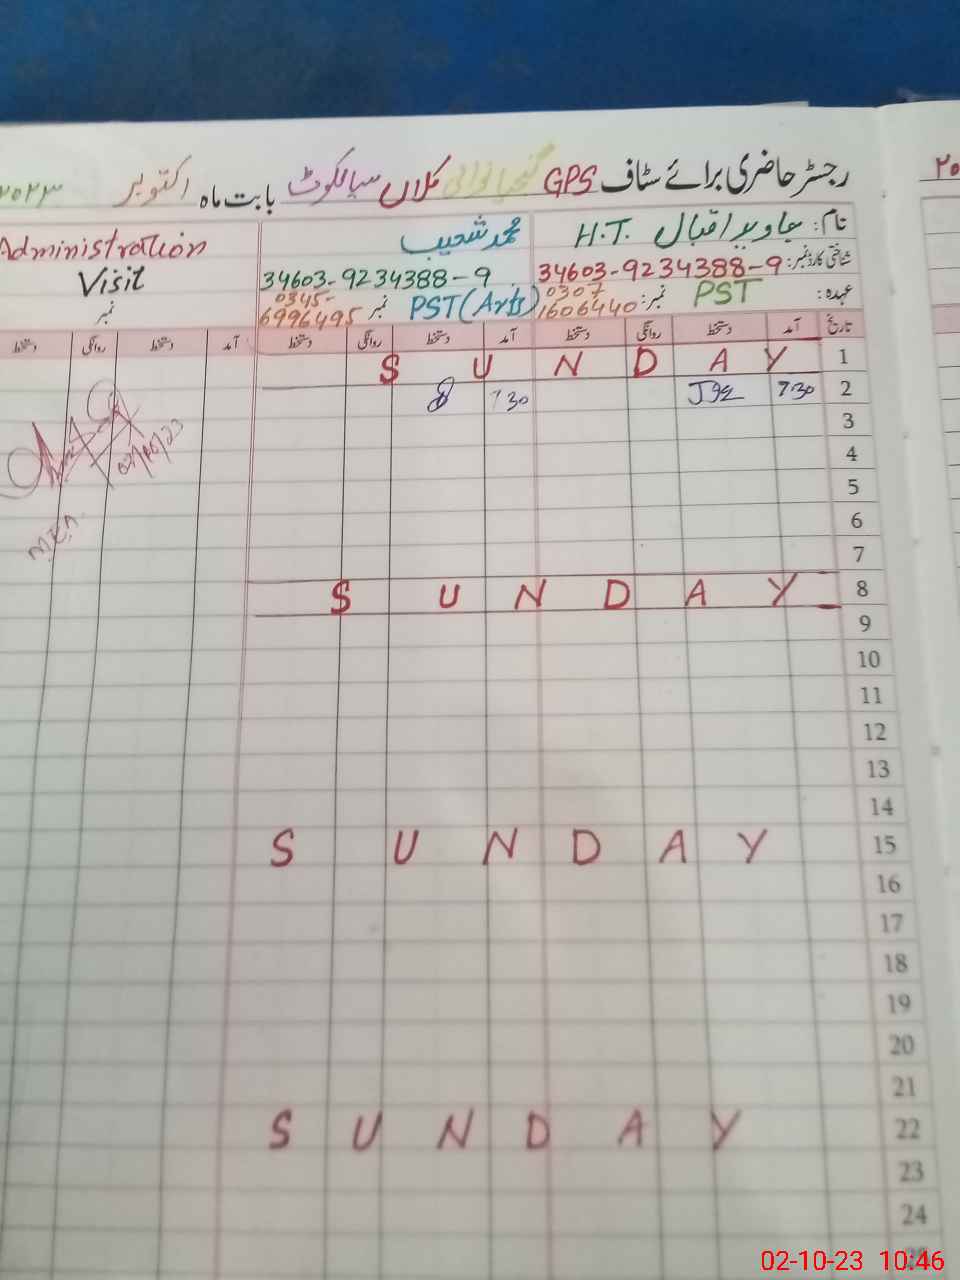 رجسٹر حاضری برائے سٹاف GPS گنجیانوالی کلاں سیالکوٹ بابت ماہ اکتوبر ۲۰۲۳
نام: جاوید اقبال H.T.
شناختی کارڈ نمبر: 34603-9234388-9
عہدہ: PST نمبر: 0307 1606440
محمد شعیب
34603-9234388-9
PST(Arts) نمبر 0345- 6996495
Administration
Visit
نمبر
تاریخ آمد دستخط روانگی دستخط آمد دستخط روانگی دستخط آمد دستخط روانگی دستخط
1 SUNDAY
2 7:30 7 30
3
4
5
6
7
8 SUNDAY
9
10
11
12
13
14
15 SUNDAY
16
17
18
19
20
21
22 SUNDAY
23
24
25
02/10/23
MEA
۲۰
02-10-23 10:46